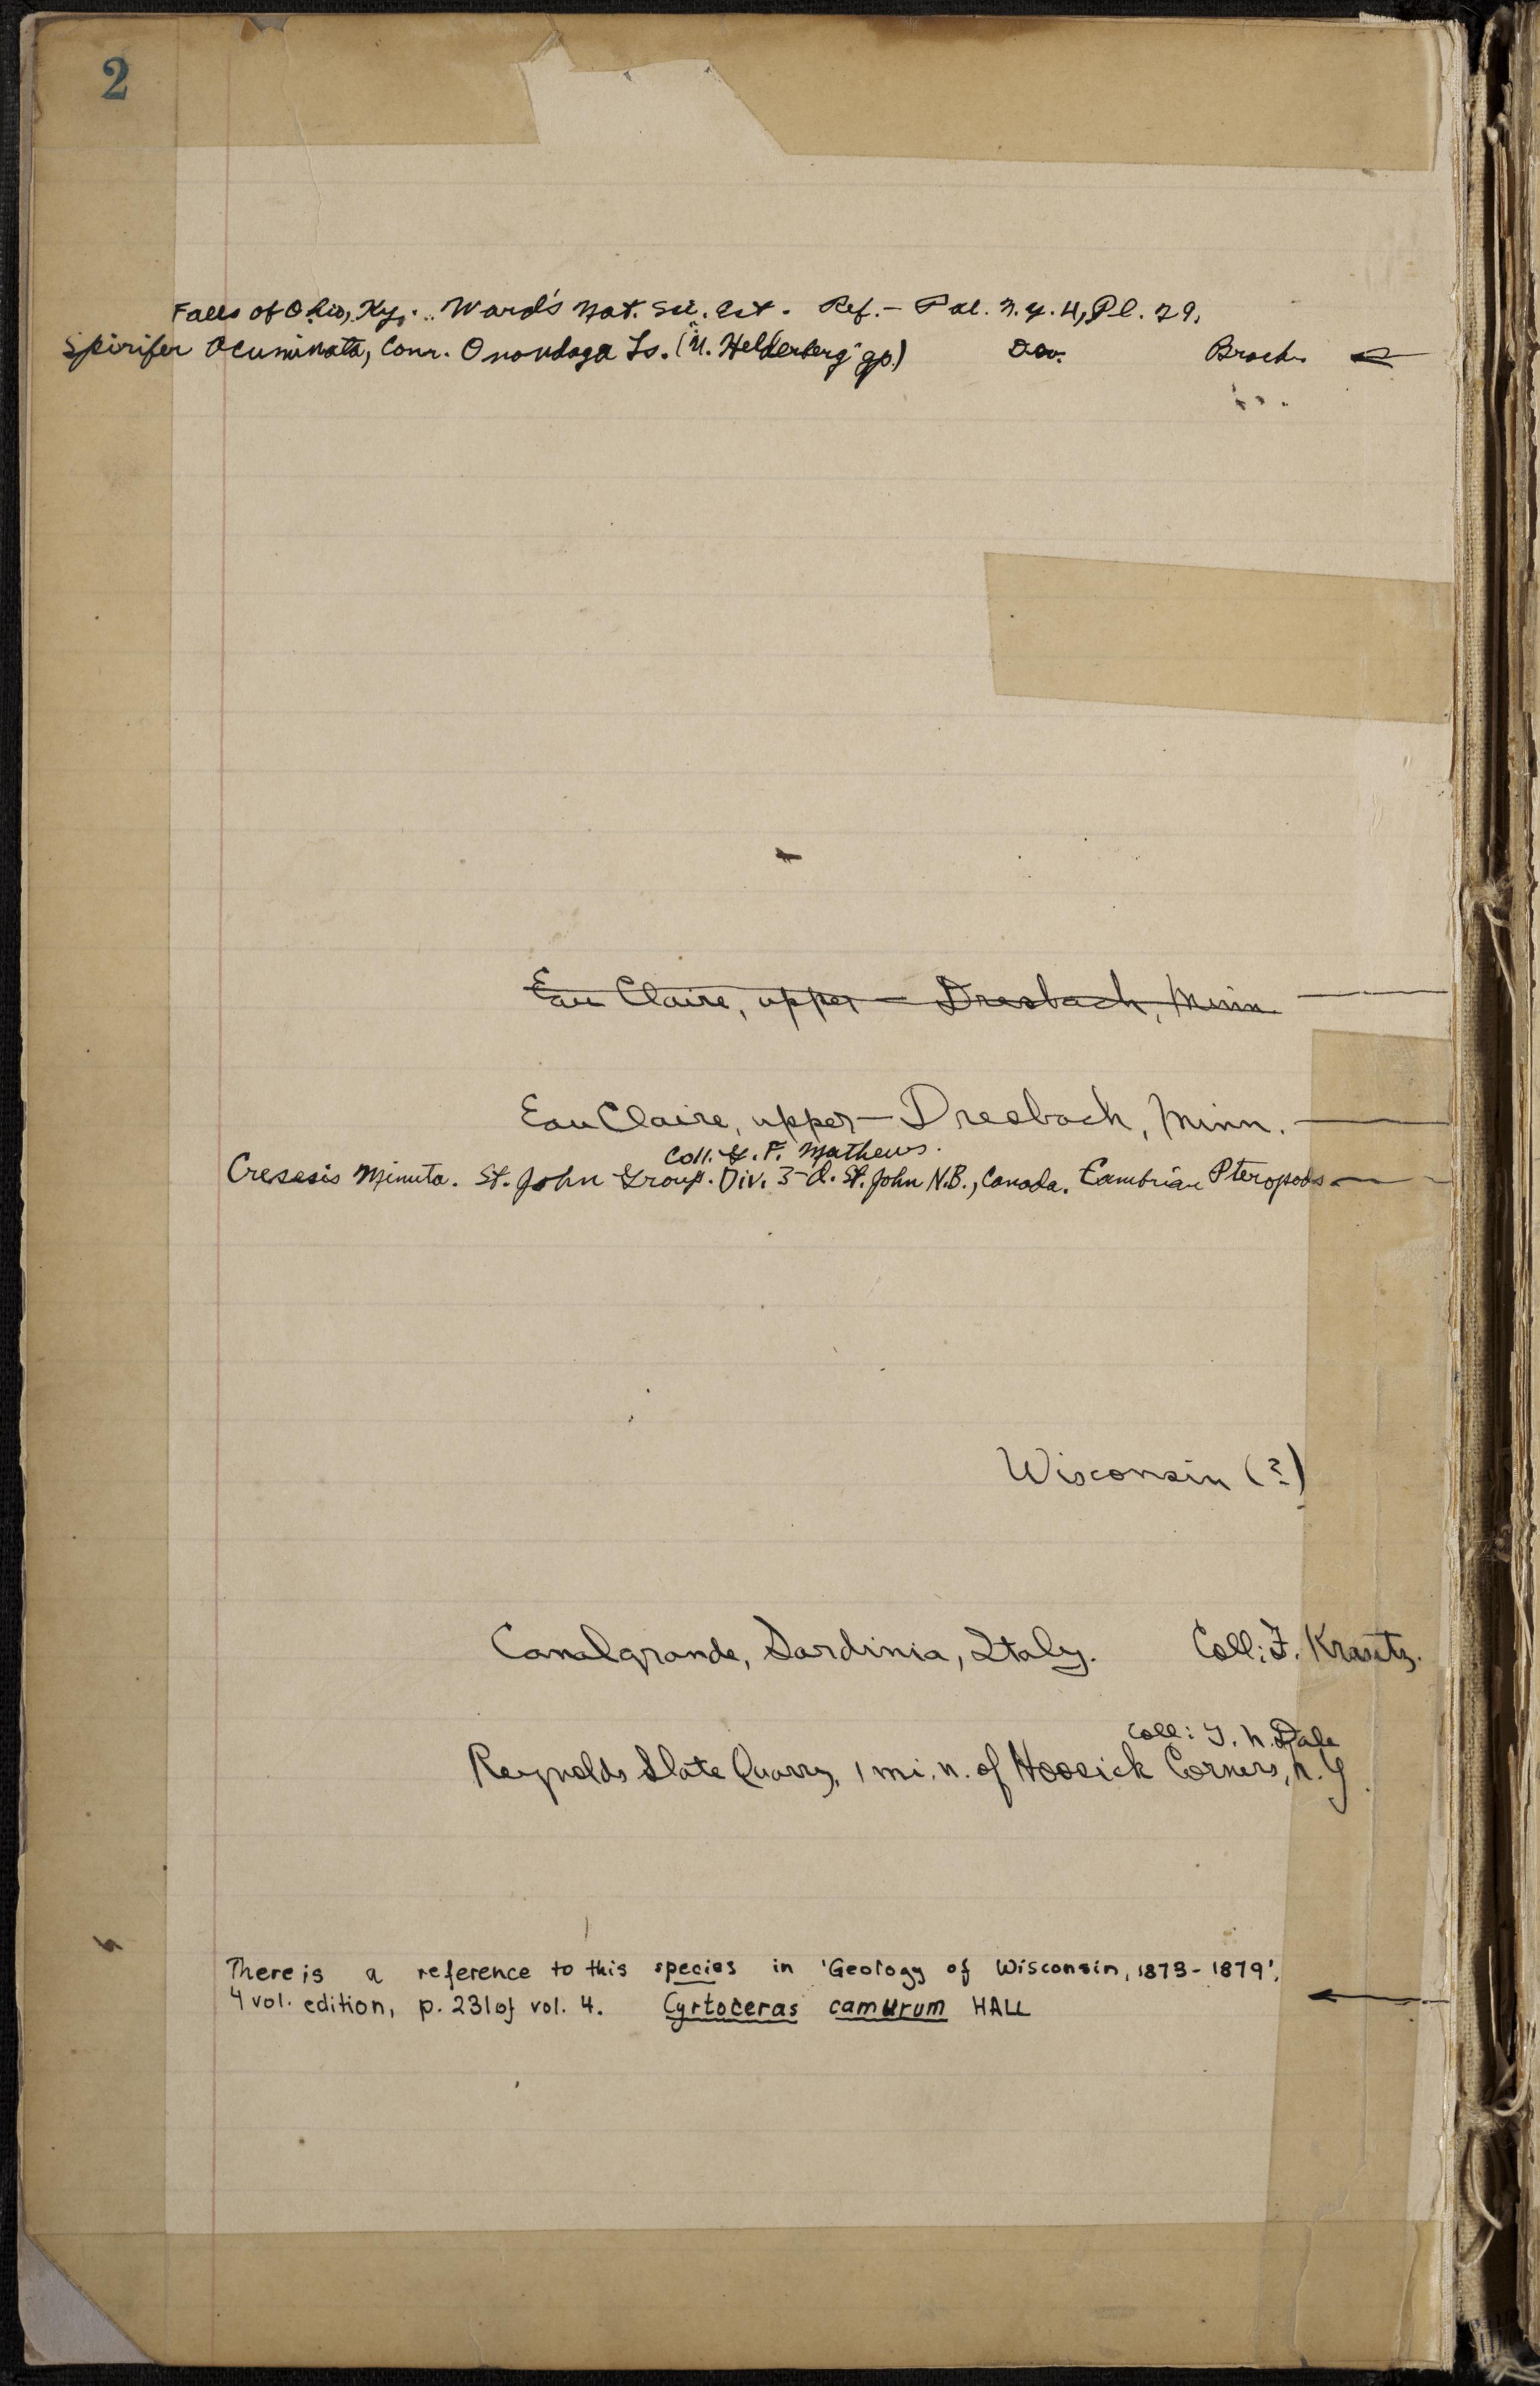 2
Falls of Ohio, Ky. Ward's Nat. Sci. Est. Ref. - Pal. N.Y. 4, Pl. 29,
Spirifer Acuminata, Conr. Onondaga Ls. ("U. Helderberg" gp.) Dev. Brach.
Eau Claire, upper - Dresbach, Minn
Eau Claire, upper - Dresbach, Minn.
Coll. G. F. Mathews.
Cresesis Minuta. St. John Group. Div. 3-d. St. John N.B., Canada. Cambrian Pteropods
Wisconsin (?)
Canalgrande, Sardinia, Italy. Coll: F. Krantz.
Coll: T. N. Dale
Reynolds Slate Quarry, 1 mi. n. of Hoosick Corners, N.Y
There is a reference to this species in 'Geology of Wisconsin, 1873-1879',
4 vol. edition, p. 231 of vol. 4. Cyrtoceras camurum HALL